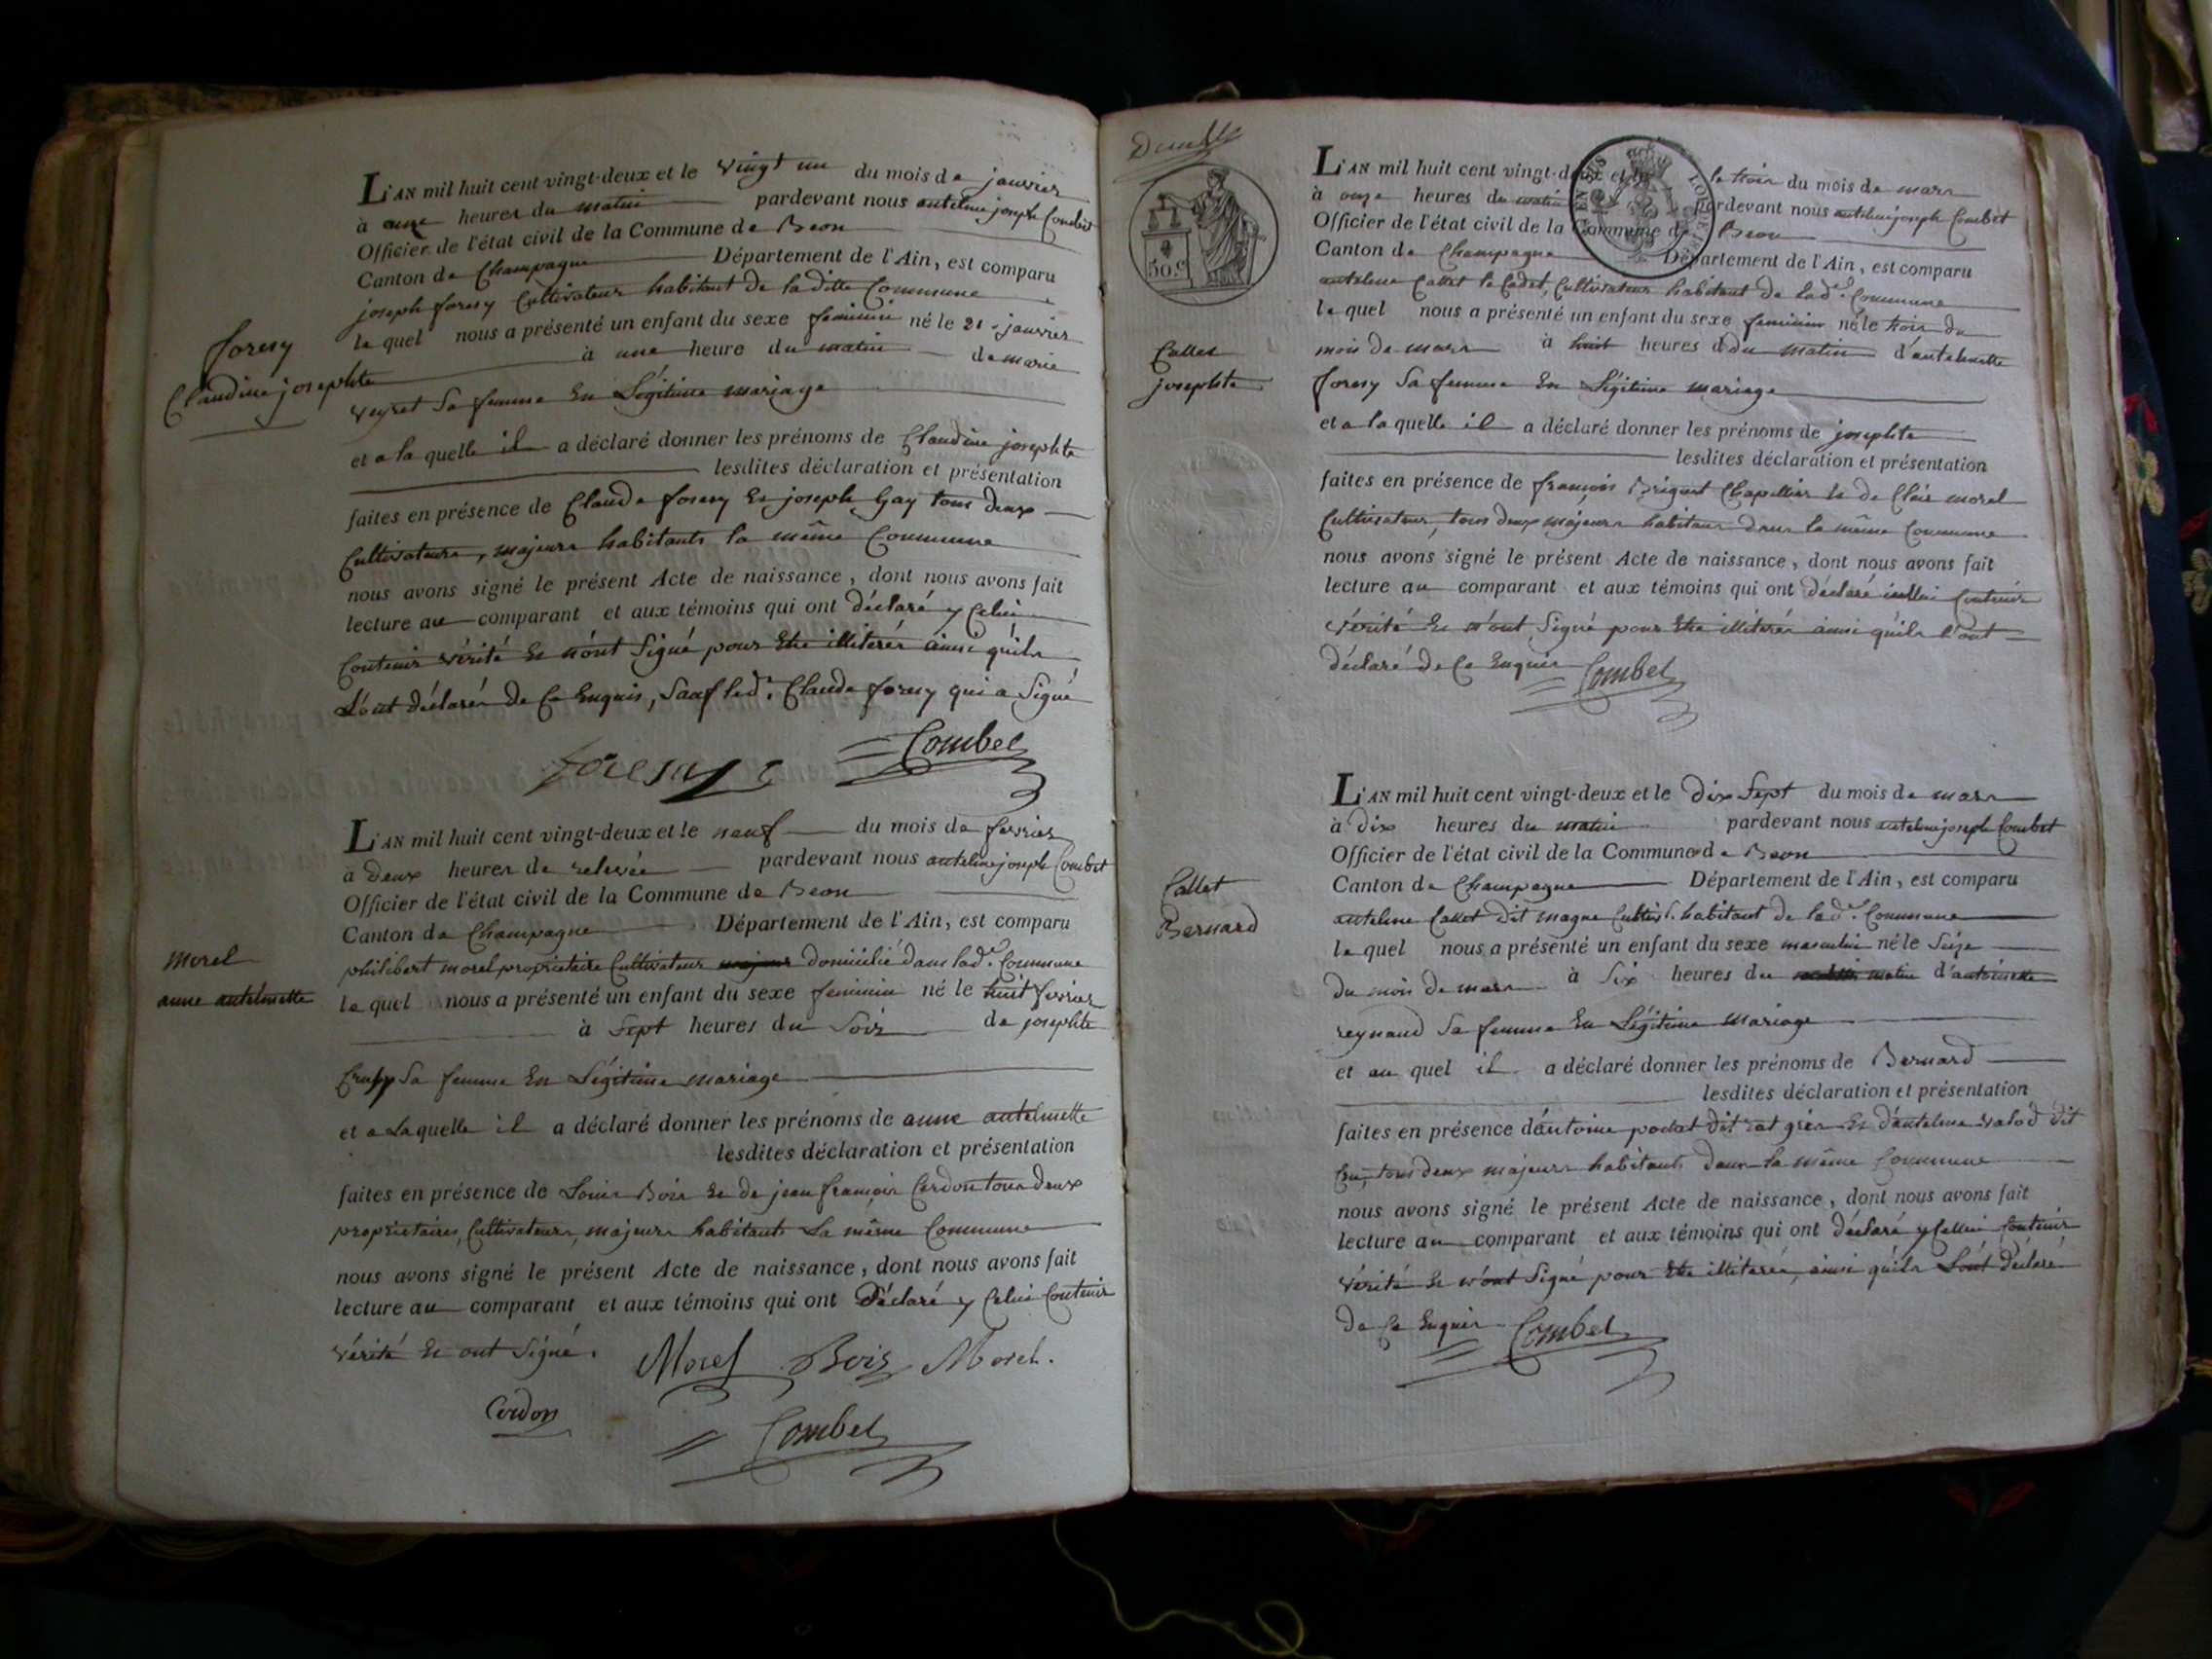 L'AN mil huit cent vingt-deux et le vingt un du mois de janvier
à onze heures du matin pardevant nous antelme joseph Combet
Officier de l'état civil de la Commune de Beon
Canton de Champagne Département de l'Ain, est comparu
joseph forery Cultivateur habitant de la ditte Commune
le quel nous a présenté un enfant du sexe feminin né le 21 janvier
à une heure du matin de marie
forery
Claudine josephte
veyret Sa femme En Légitime mariage
et a la quelle il a déclaré donner les prénoms de Claudine josephte
lesdites déclaration et présentation
faites en présence de Claude forery Et joseph Gay tous deux
Cultivateurs, majeurs habitants la même Commune
nous avons signé le présent Acte de naissance, dont nous avons fait
lecture au comparant et aux témoins qui ont déclaré y Celui
Contenir vérité Et n'ont Signé pour Etre illiterés ainsi qu'ils
L'ont déclarés de Ce Enquis, Sauf led. Claude forery qui a Signé
Combet
L'AN mil huit cent vingt-deux et le neuf du mois de fevrier
à Deux heures de relevée pardevant nous antelme joseph Combet
Officier de l'état civil de la Commune de Beon
Canton de Champagne Département de l'Ain, est comparu
morel
anne antelmette
philibert morel propriétaire Cultivateur domicilié dans lad. Commune
le quel nous a présenté un enfant du sexe feminin né le huit fevrier
à Sept heures du Soir de josephte
Sa femme En Légitime mariage
et a Laquelle il a déclaré donner les prénoms de anne antelmette
lesdites déclaration et présentation
faites en présence de Louis Bois Et de jean françois Cerdon tous deux
propriétaires, Cultivateurs, majeurs habitants La même Commune
nous avons signé le présent Acte de naissance, dont nous avons fait
lecture au comparant et aux témoins qui ont Déclaré y Celui Contenir
vérité Et ont Signé.
Morel Bois Morel.
Cerdon
Combet
50.c
L'AN mil huit cent vingt-deux et le trois du mois de mars
à onze heures du matin pardevant nous antelme joseph Combet
Officier de l'état civil de la Commune de Beon
Canton de Champagne Département de l'Ain, est comparu
antelme Callet le Cadet, Cultivateur habitant de lad. Commune
le quel nous a présenté un enfant du sexe feminin né le trois du
Callet
josephte
mois de mars à huit heures du matin d'antelmette
forery Sa femme En Légitime mariage
et a la quelle il a déclaré donner les prénoms de josephte
lesdites déclaration et présentation
faites en présence de françois Briquet Chapellier Et de Clair morel
Cultivateur, tous deux majeurs habitans dans la même Commune
nous avons signé le présent Acte de naissance, dont nous avons fait
lecture au comparant et aux témoins qui ont déclaré Contenir
vérité Et n'ont Signé pour Etre illiterés ainsi qu'ils l'ont
déclaré de Ce Enquis Combet
L'AN mil huit cent vingt-deux et le Dix Sept du mois de mars
à Dix heures du matin pardevant nous antelme joseph Combet
Officier de l'état civil de la Commune de Beon
Callet
Bernard
Canton de Champagne Département de l'Ain, est comparu
antelme Callet dit magne habitant de lad. Commune
le quel nous a présenté un enfant du sexe masculin né le Seize
du mois de mars à Six heures du matin d'antoinette
reynaud Sa femme En Légitime Mariage
et au quel il a déclaré donner les prénoms de Bernard
lesdites déclaration et présentation
faites en présence d'antoine dit Et d'antelme dit
tous deux majeurs habitants dans la même Commune
nous avons signé le présent Acte de naissance, dont nous avons fait
lecture au comparant et aux témoins qui ont déclaré y Cellui Contenir
vérité Et n'ont Signé pour Etre illiterés, ainsi qu'ils L'ont déclaré
de Ce Enquis Combet